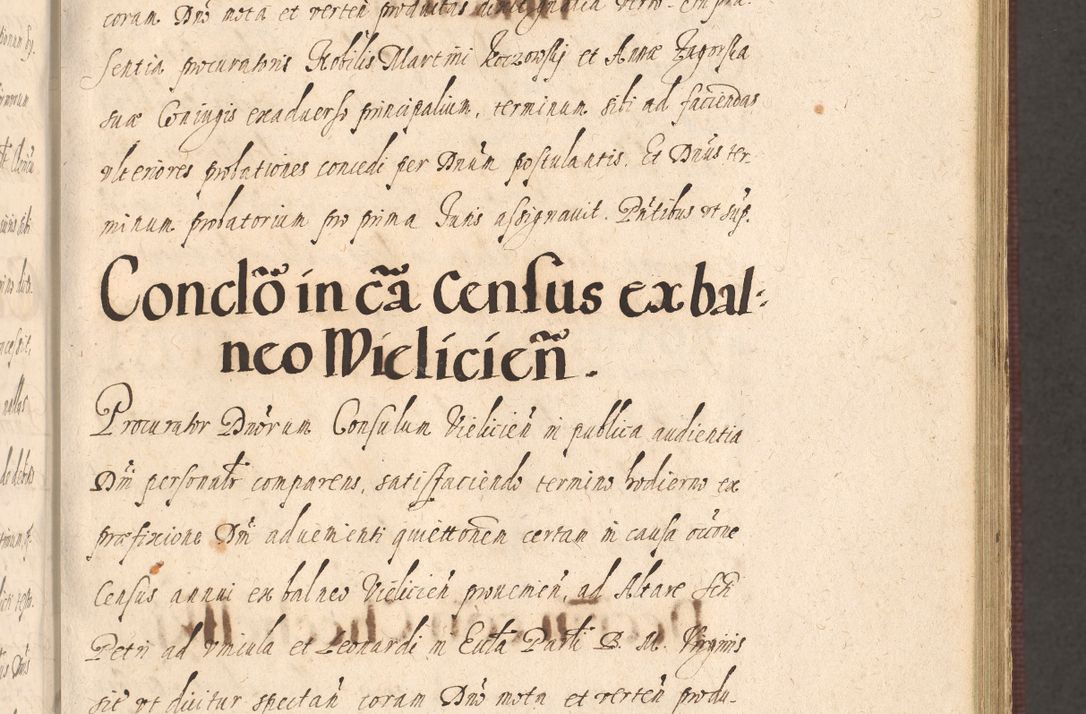 coram Dnō mota et verteñ produxit
sentia procuratoris Nobilis Martini Koczowskj et Annæ Zagorska
suæ Coniugis ex aduerso principalium, terminum sibi ad faciendas
vlteriores probationes concedi per Dnūm postulantis. Et Dnūs ter-
minum probatorium pro prima Juris assignauit. Pntibus vt sup.
Conclō in cā Census ex bal:
neo Wielicień.
Procurator Dnōrum Consulum Vielicień in publica audientia
Dni personalr comparens, satisfaciendo termino hodierno ex
præfixione Dni aduenienti quiettōnem certam in causa occōne
Census annui ex balneo Vielicień prouenień, ad Altare Sti
Petri ad vincula et Leonardi in Eccla Parli B. M. Virginis
sit vt dicitur spectań coram Dnō mota et verteń produ-